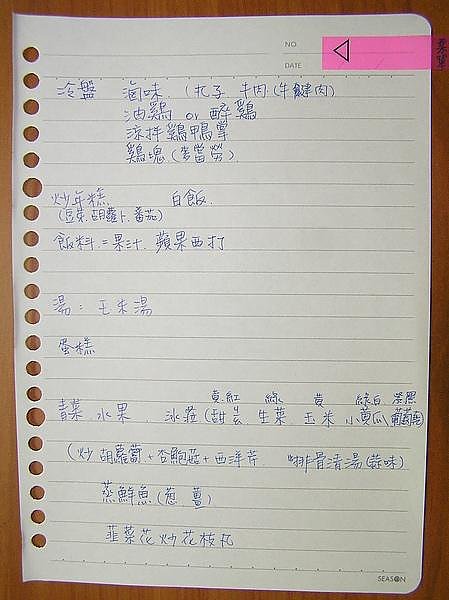 NO.
DATE
菜單
冷盤 滷味.(丸子 牛肉(牛腱肉)
油鷄 or 醉鷄
涼拌鷄鴨掌
鷄塊(麥當勞)
炒年糕 白飯.
(豆芽.胡蘿卜.番茄)
飯料:=果汁. 蘋果西打
湯: 玉米湯
蛋糕
黃.紅 綠 黃 綠白 紫黑
青菜 水果 冰菈(甜 生菜 玉米 小黃瓜\葡萄
(炒 胡蘿蔔+杏鮑菇+西洋芹 排骨清湯(蒜味)
蒸鮮魚(蔥 薑)
韮菜花炒花枝丸
SEASON